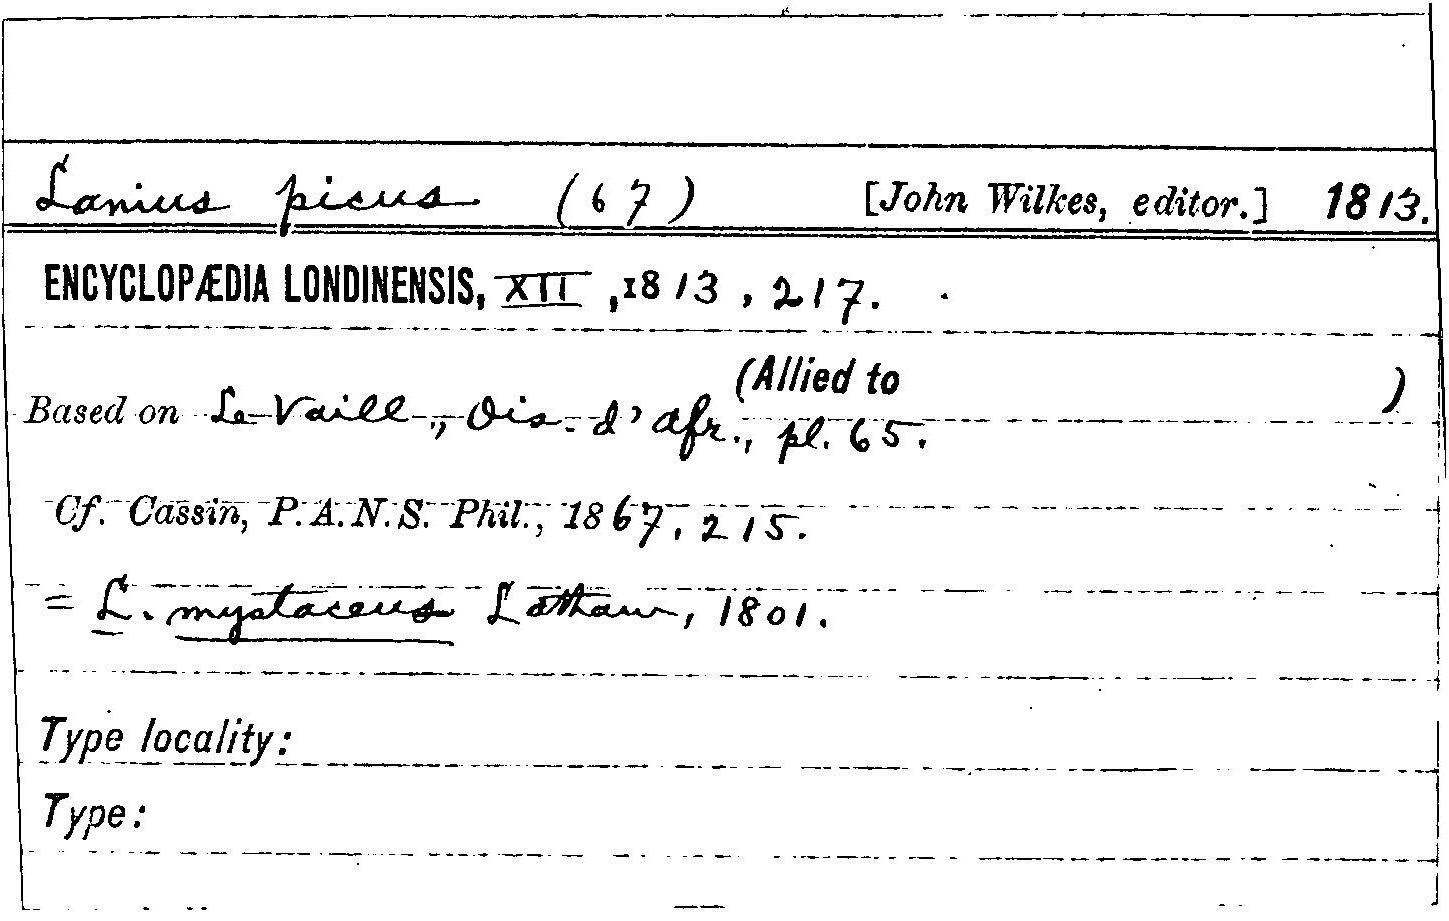 Lanius picus (67) [John Wilkes, editor.] 1813.
ENCYCLOPÆDIA LONDINENSIS, XII, 1813, 217.
(Allied to )
Based on Le Vaill., Ois. d'Afr., pl. 65.
Cf. Cassin, P.A.N.S. Phil., 1867, 215.
= L. mystaceus Latham, 1801.
Type locality:
Type: